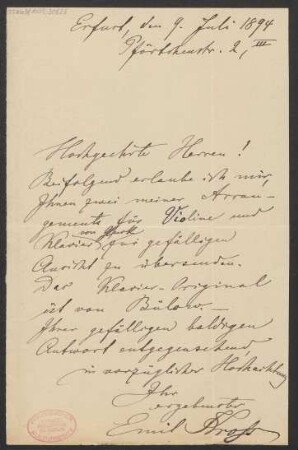 Erfurt, den 9. Juli 1894
Pförtchenstr. 2, III
Hochgeehrte Herren!
Beifolgend erlaube ich mir,
Ihnen zwei meiner Arran-
gements für Violine und
von Gluck
Klavier zur gefälligen
Ansicht zu übersenden.
Das Klavier-Original
ist von Bülow. —
Ihrer gefälligen baldigen
Antwort entgegensehend,
in vorzüglicher Hochachtung
Ihr
ergebenster
Emil Kross